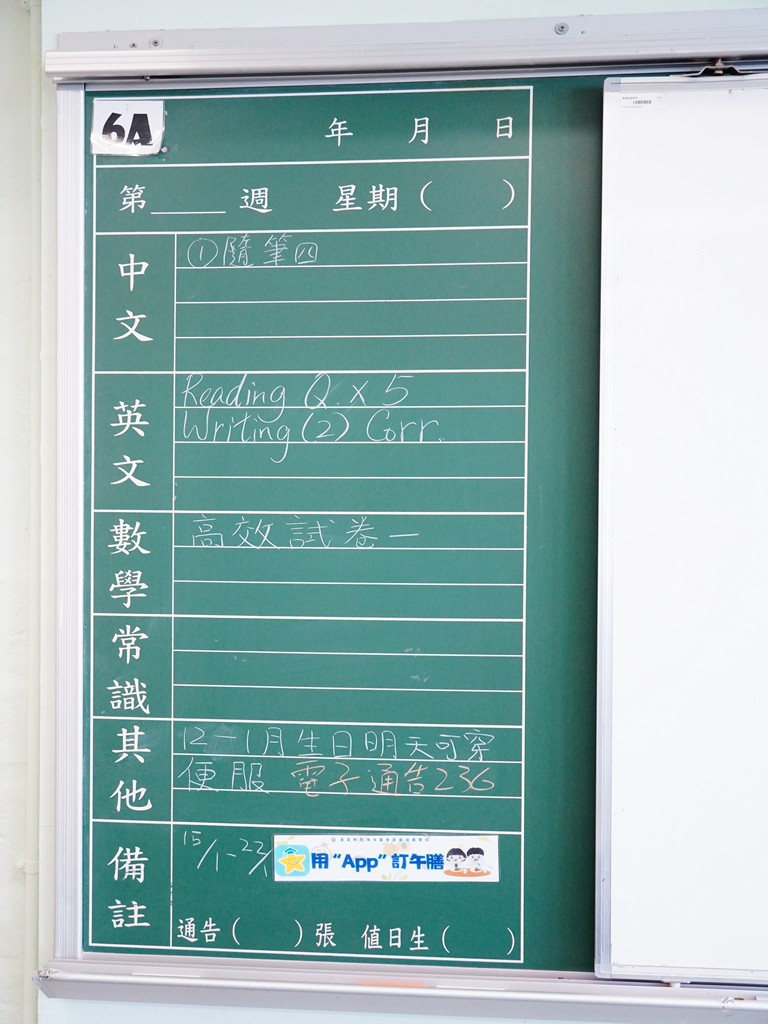 6A
年 月 日
第____週 星期( )
中文
①隨筆四
英文
Reading Q. x 5
Writing (2) Corr.
數學
高效試卷一
常識
其他
12-1月生日明天可穿
便服 電子通告236
備註
15/1-22/1
用“App”訂午膳
通告( )張 值日生( )